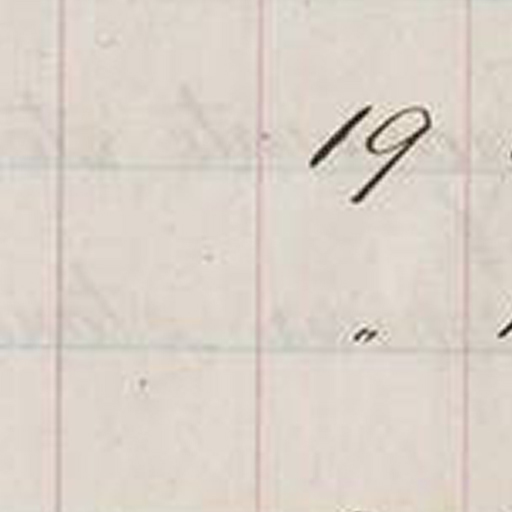 19
"